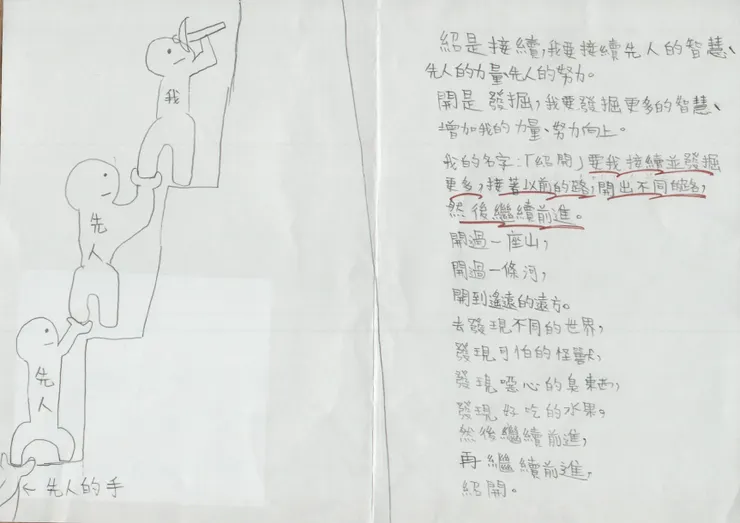 我
先
人
先
人
←先人的手
紹是接續,我要接續先人的智慧、
先人的力量、先人的努力。
開是發掘,我要發掘更多的智慧、
增加我的力量、努力向上。
我的名字:「紹開」要我接續並發掘
更多,接著以前的路,開出不同的路,
然後繼續前進。
開過一座山,
開過一條河,
開到遙遠的遠方。
去發現不同的世界,
發現可怕的怪獸,
發現噁心的臭東西,
發現好吃的水果。
然後繼續前進,
再繼續前進,
紹開。